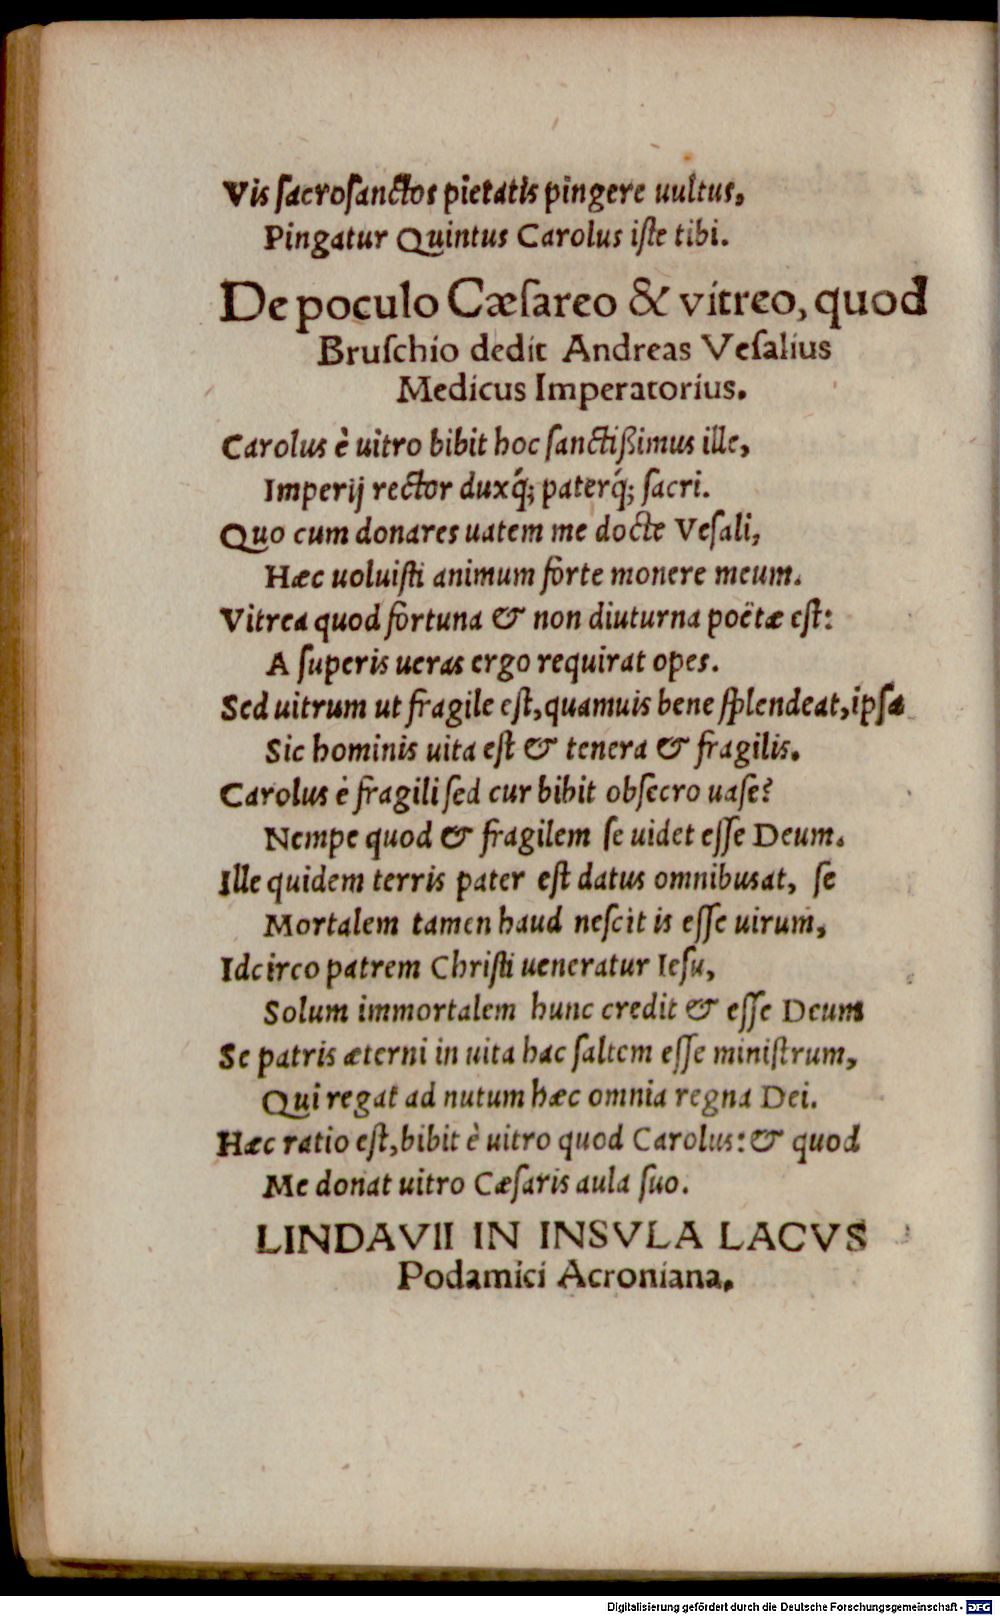 Vis sacrosanctos pietatis pingere uultus,
Pingatur Quintus Carolus iste tibi.
De poculo Cæsareo & vitreo, quod
Bruschio dedit Andreas Vesalius
Medicus Imperatorius.
Carolus è uitro bibit hoc sanctißimus ille,
Imperij rector duxq́; paterq́; sacri.
Quo cum donares uatem me docte Vesali,
Hæc uoluisti animum forte monere meum.
Vitrea quod fortuna & non diuturna poëtæ est:
A superis ueras ergo requirat opes.
Sed uitrum ut fragile est, quamuis bene splendeat, ipsa
Sic hominis uita est & tenera & fragilis.
Carolus è fragili sed cur bibit obsecro uase?
Nempe quod & fragilem se uidet esse Deum.
Ille quidem terris pater est datus omnibus at, se
Mortalem tamen haud nescit is esse uirum,
Idcirco patrem Christi ueneratur Iesu,
Solum immortalem hunc credit & esse Deum
Se patris æterni in uita hac saltem esse ministrum,
Qui regat ad nutum hæc omnia regna Dei.
Hæc ratio est, bibit è uitro quod Carolus: & quod
Me donat uitro Cæsaris aula suo.
LINDAVII IN INSVLA LACVS
Podamici Acroniana.
Digitalisierung gefördert durch die Deutsche Forschungsgemeinschaft - DFG